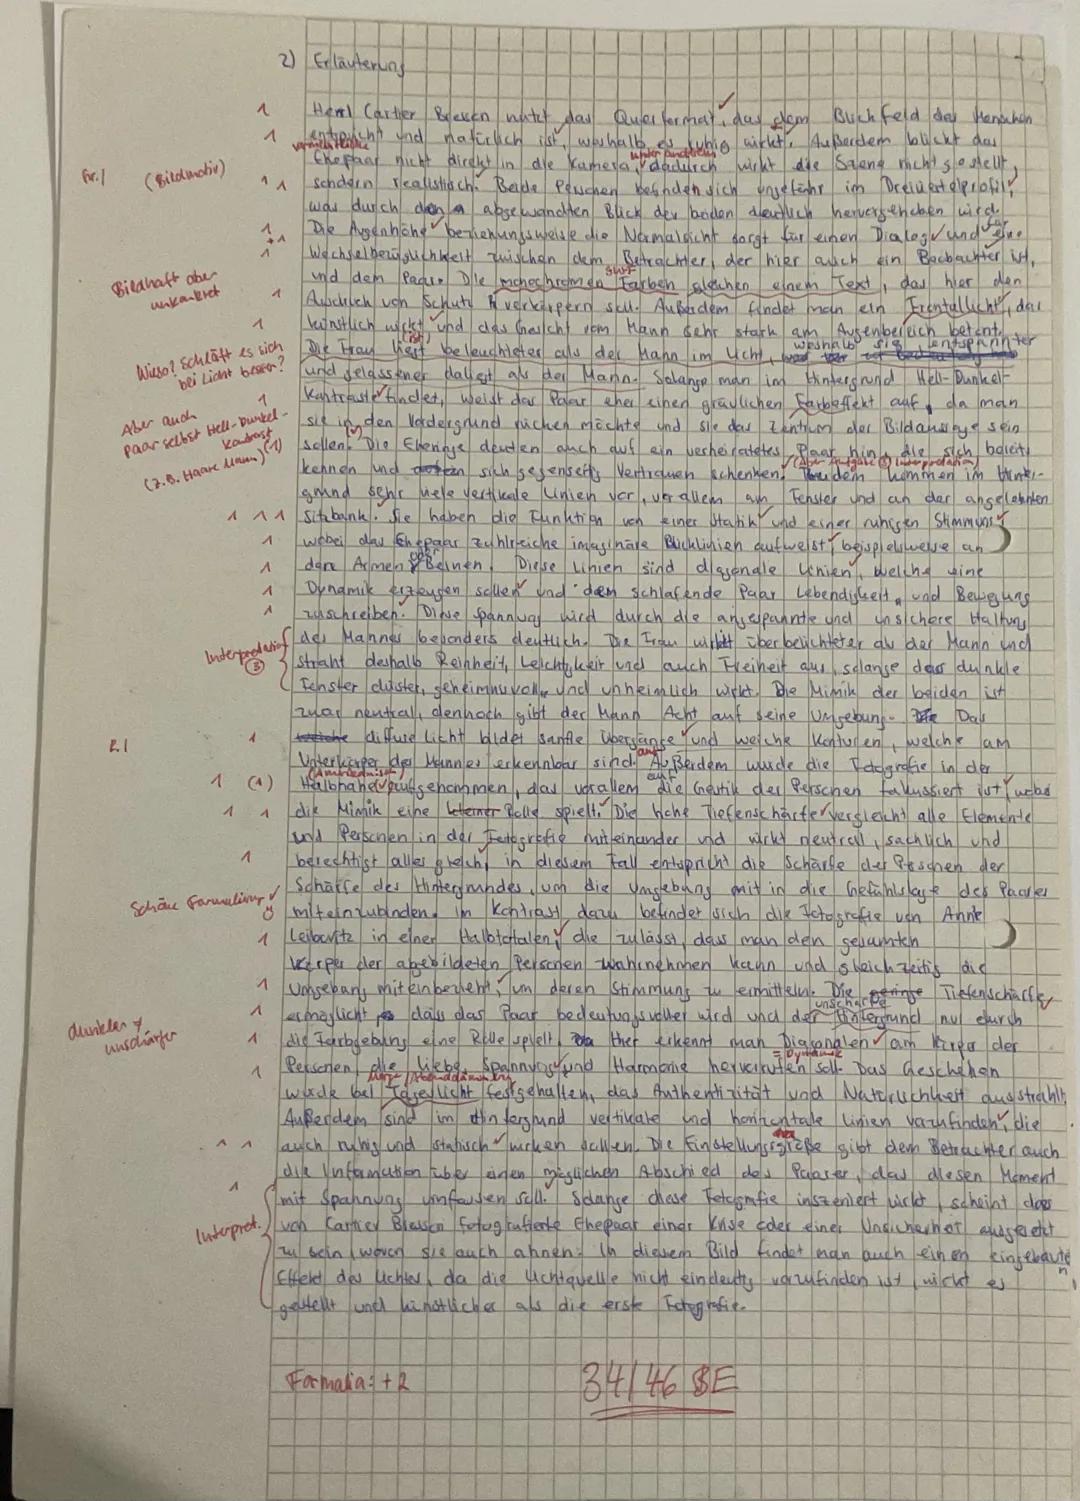 2) Erläuterung
Henri Cartier Bresson nutzt das Querformat, das dem Blickfeld des Menschen
entspricht und natürlich ist, weshalb es ruhig wirkt. Außerdem blickt das
vermeintliche
Fr.1 (Bildmotiv)
Ehepaar nicht direkt in die Kamera, dadurch wirkt die Szene nicht gestellt,
unter anderem
sondern realistisch. Beide Personen befinden sich ungefähr im Dreiviertelprofil,
was durch den abgewandten Blick der beiden deutlich hervorgehoben wird.
Die Augenhöhe beziehungsweise die Normalsicht sorgt für einen Dialog und für eine
Wechselbezüglichkeit zwischen dem Betrachter, der hier auch ein Beobachter ist,
Bildhaft aber unkonkret
und dem Paar. Die monochromen Farben gleichen einem Text, das hier den
Ausdruck von Schutz verkörpern soll. Außerdem findet man ein Frontallicht, das
künstlich wirkt und das Gesicht vom Mann sehr stark am Augenbereich betont.
Wieso? Schläft es sich bei Licht besser?
Die Frau liegt beleuchteter als der Mann im Licht, weshalb sie entspannter
(ist)
und gelassener daliegt als der Mann. Solange man im Hintergrund Hell-Dunkel-
Aber auch Paar selbst Hell-Dunkel-Kontrast (z.B. Haare Mann) (-1)
Kontraste findet, weist das Paar eher einen gräulichen Farbeffekt auf, da man
sie in den Vordergrund rücken möchte und sie das Zentrum der Bildaussage sein
sollen. Die Eheringe deuten auch auf ein verheiratetes Paar hin, die sich bereits
kennen und sich gegenseitig Vertrauen schenken. Zudem kommen im Hinter-
(aber Aufgabe ③ Interpretation)
grund sehr viele vertikale Linien vor, vor allem am Fenster und an der angelehnten
Sitzbank. Sie haben die Funktion von einer Statik und einer ruhigen Stimmung,
wobei das Ehepaar zahlreiche imaginäre Blicklinien aufweist, beispielsweise an
den Armen oder Beinen. Diese Linien sind diagonale Linien, welche eine
Dynamik erzeugen sollen und dem schlafende Paar Lebendigkeit und Bewegung
zuschreiben. Diese Spannung wird durch die angespannte und unsichere Haltung
Interpretation ③
des Mannes besonders deutlich. Die Frau wirkt überbelichteter als der Mann und
strahlt deshalb Reinheit, Leichtigkeit und auch Freiheit aus, solange das dunkle
Fenster düster, geheimnisvoll und unheimlich wirkt. Die Mimik der beiden ist
zwar neutral, dennoch gibt der Mann Acht auf seine Umgebung. Das
R.1
diffuse Licht bildet sanfte Übergänge und weiche Konturen, welche am
Unterkörper des Mannes erkennbar sind. Außerdem wurde die Fotografie in der
Halbnahe aufgenommen, das vorallem auf die Gestik der Personen fokussiert ist, wobei
die Mimik eine Rolle spielt. Die hohe Tiefenschärfe vergleicht alle Elemente
und Personen in der Fotografie miteinander und wirkt neutral, sachlich und
berechtigt alles gleich, in diesem Fall entspricht die Schärfe der Personen der
Schöne Formulierung
Schärfe des Hintergrundes, um die Umgebung mit in die Gefühlslage des Paares
miteinzubinden. Im Kontrast dazu befindet sich die Fotografie von Annie
Leibovitz in einer Halbtotalen, die zulässt, dass man den gesamten
Körper der abgebildeten Personen wahrnehmen kann und gleichzeitig die
Umgebung miteinbezieht, um deren Stimmung zu ermitteln. Die geringe Tiefenschärfe
ermöglicht, dass das Paar bedeutungsvoller wird und der Hintergrund nur durch
unscharfe
dunkler + unschärfer
die Farbgebung eine Rolle spielt. Hier erkennt man Diagonalen am Körper der
Personen, die Liebe, Spannung und Harmonie hervorrufen soll. Das Geschehen
= Dynamik
wurde bei Tageslicht festgehalten, das Authentizität und Natürlichkeit ausstrahlt.
Außerdem sind im Hintergrund vertikale und horizontale Linien vorzufinden, die
auch ruhig und statisch wirken sollen. Die Einstellungsgröße gibt dem Betrachter auch
die Information über einen möglichen Abschied des Paares, das diesen Moment
mit Spannung umfassen soll. Solange diese Fotografie inszeniert wirkt, scheint das
Interpret.
von Cartier Bresson fotografierte Ehepaar einer Krise oder einer Unsicherheit ausgesetzt
zu sein, wovon sie auch ahnen. In diesem Bild findet man auch einen eingebauten
Effekt des Lichtes, da die Lichtquelle nicht eindeutig vorzufinden ist, wirkt es
gestellt und künstlicher als die erste Fotografie.
Formalia: +2
34/46 BE